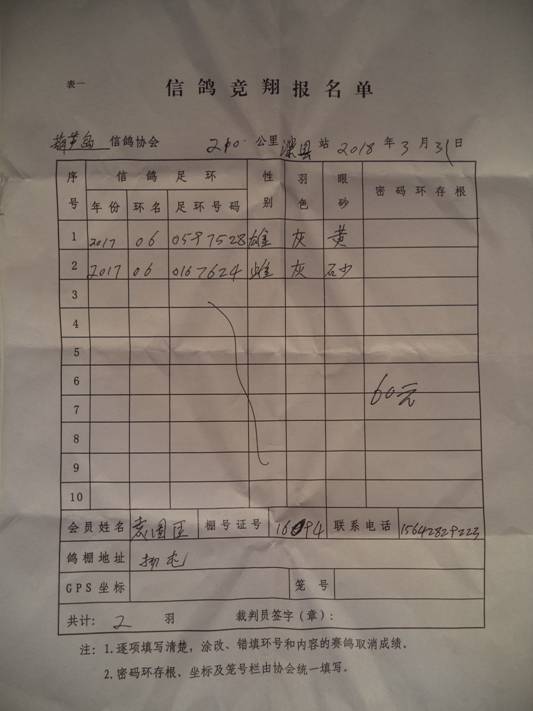 表一
信鸽竞翔报名单
葫芦岛 信鸽协会 210 公里 滦县 站 2018 年 3 月 31 日
序号 信鸽足环 性别 羽色 眼砂 密码环存根
年份 环名 足环号码
1 2017 06 0597528 雄 灰 黄
2 2017 06 0167624 雌 灰 砂
3
4
5
6
60元
7
8
9
10
会员姓名 袁国臣 棚号证号 联系电话 15642829223
鸽棚地址
GPS坐标 笼号
共计: 2 羽 裁判员签字(章):
注: 1.逐项填写清楚,涂改、错填环号和内容的赛鸽取消成绩。
2.密码环存根、坐标及笼号栏由协会统一填写。